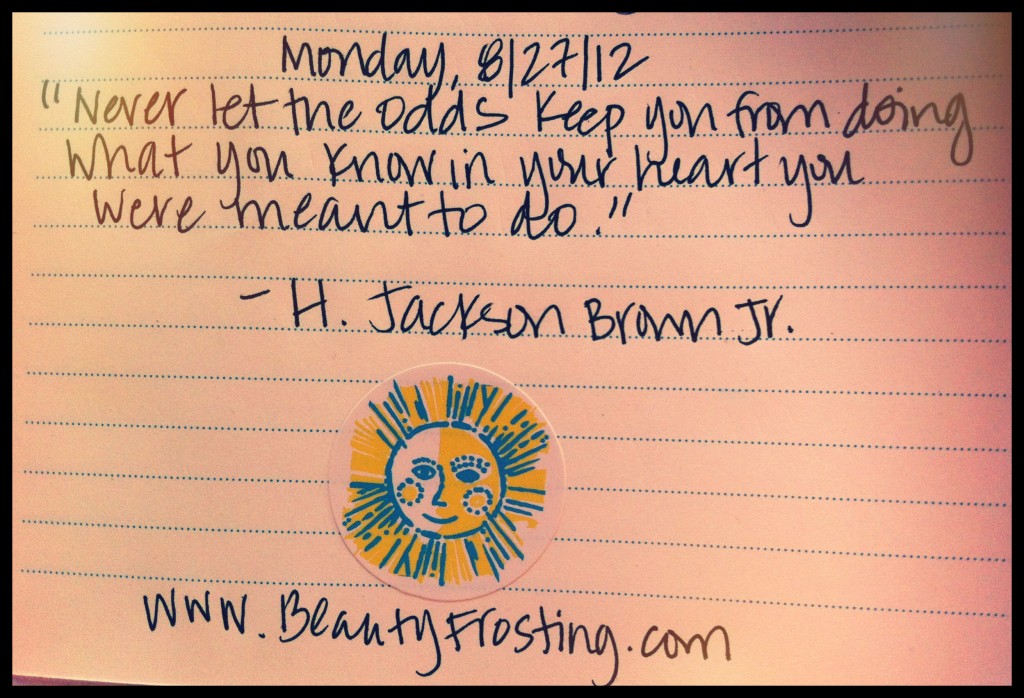 Monday, 8/27/12
"Never let the odds keep you from doing
what you know in your heart you
were meant to do."
- H. Jackson Brown Jr.
www.BeautyFrosting.com